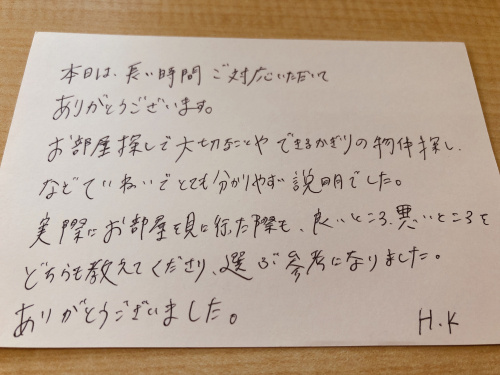 本日は、長い時間ご対応いただいて
ありがとうございます。
お部屋探しで大切なことやできるかぎりの物件探し、
などていねいでとても分かりやすい説明でした。
実際にお部屋を見に行った際も、良いところ、悪いところを
どちらも教えてくださり、選ぶ参考になりました。
ありがとうございました。
H.K